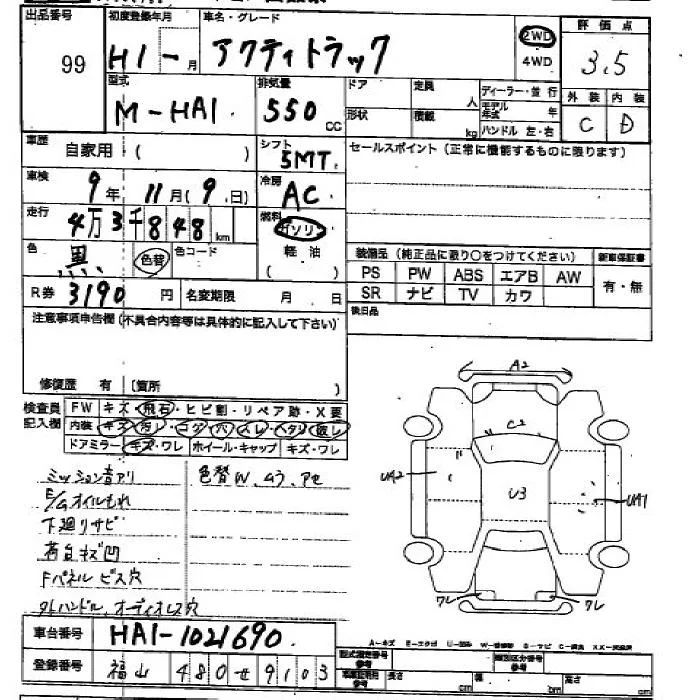 出品番号
99
初度登録年月
H1 - 月
車名・グレード
アクティトラック
2WD
4WD
評価点
3.5
型式
M-HA1
排気量
550 cc
ドア
定員
人
ディーラー・並行
形状
積載
kg
モデル年式
年
ハンドル 左・右
外装
内装
C
D
車歴
自家用・( )
シフト
5MT
セールスポイント (正常に機能するものに限ります)
車検
9年 11月(9日)
冷房
AC
走行
4万3千848 km
燃料
ガソリン
軽油
( )
色
黒
色替
色コード
装備品 (純正品に限り○をつけてください)
新車保証書
PS
PW
ABS
エアB
AW
SR
ナビ
TV
カワ
有・無
R券
3190 円
名変期限
月 日
後日品
注意事項申告欄(不具合内容等は具体的に記入して下さい)
修復歴 有 (箇所 )
検査員
記入欄
FW
キズ・飛石・ヒビ割・リペア跡・X要
内装
キズ・汚レ・コゲ・穴・スレ・ヘタリ・破レ
ドアミラー
キズ・ワレ
ホイール・キャップ
キズ・ワレ
ミッション音アリ
色替W、ムラ、アセ
E/Gオイルもれ
下廻りサビ
荷台キズ凹
Fパネル ビス穴
外ハンドル、オーディオレス穴
A2
C2
UA2
U3
UA1
ワレ
ワレ
車台番号
HA1-1021690
登録番号
福山 480せ9103
A-キズ
型式指定番号
参考
類別区分番号
参考
長さ
cm
幅
cm
高さ
cm